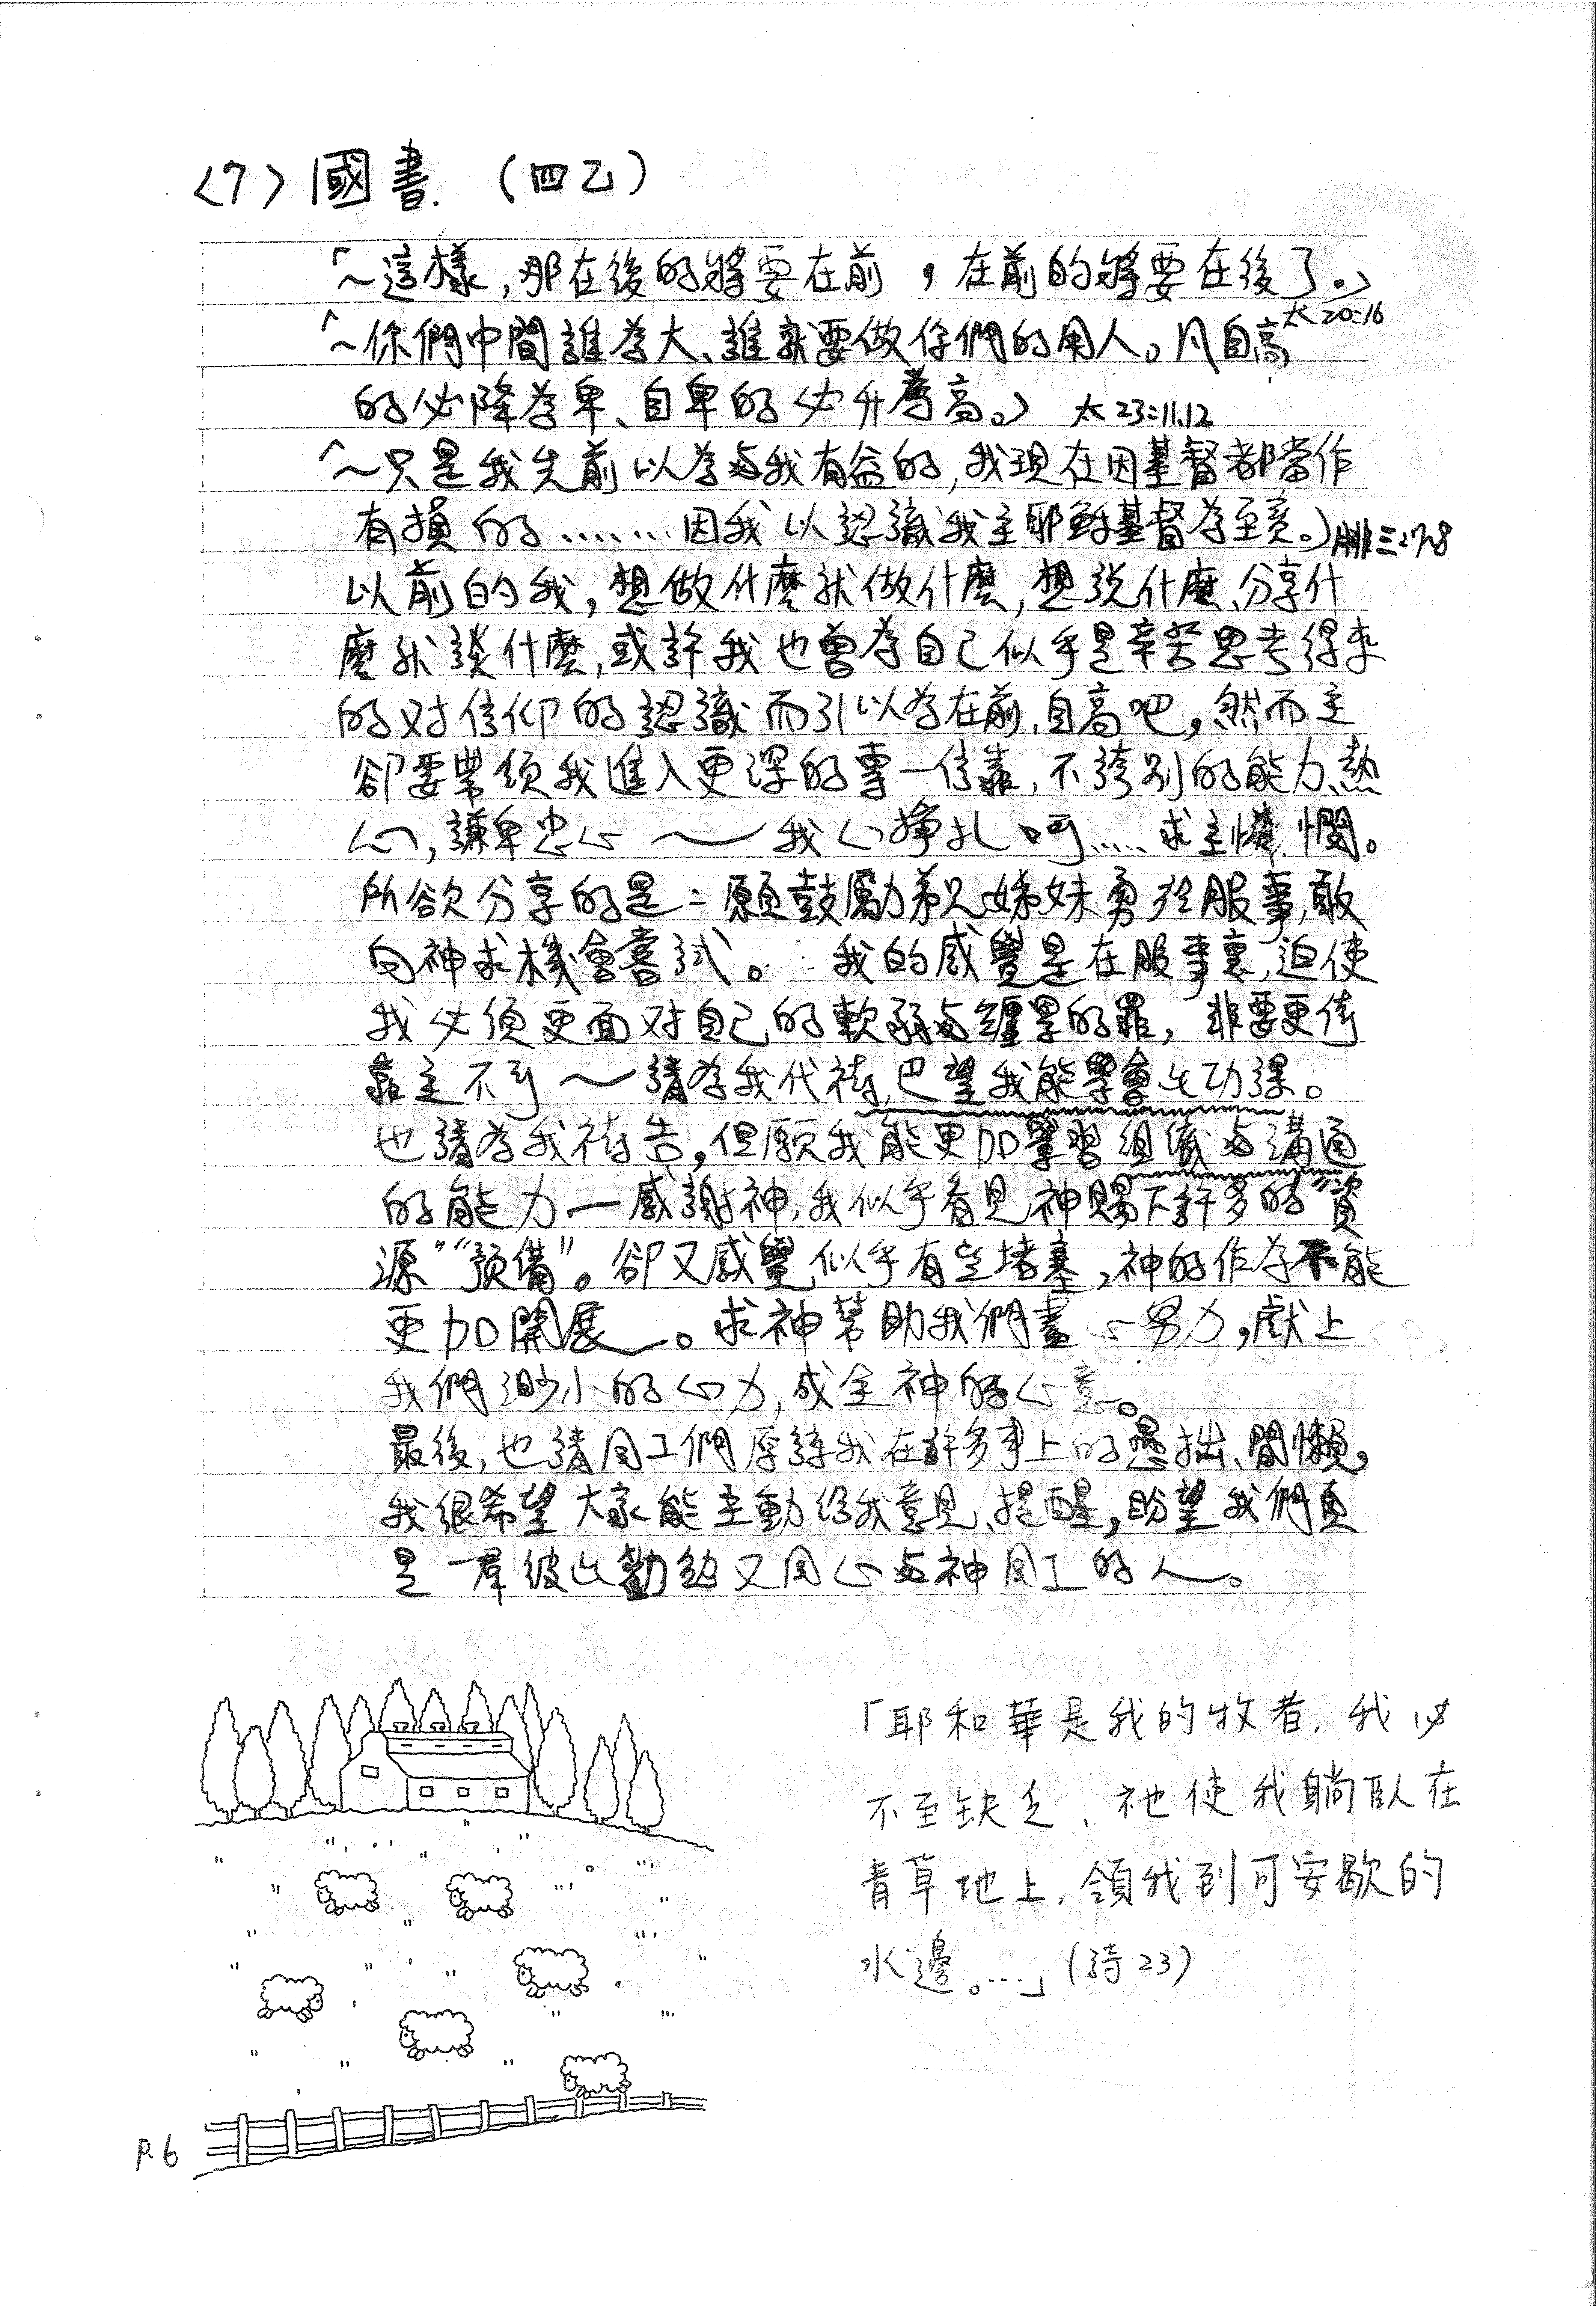 〈7〉國書.（四乙）
「～這樣,那在後的將要在前，在前的將要在後了。〉
太20:16
〈～你們中間誰為大、誰就要做你們的用人。凡自高
的必降為卑、自卑的必升為高。〉 太23:11.12
〈～只是我先前以為與我有益的,我現在因基督都當作
有損的........因我以認識我主耶穌基督為至寶。〉腓三:7~8
以前的我,想做什麼就做什麼,想說什麼、分享什
麼就談什麼,或許我也曾為自己似乎是辛苦思考得來
的对信仰的認識而引以為在前、自高吧,然而主
卻要帶領我進入更深的專一信靠,不誇別的能力、熱
心,謙卑忠心～我心掙扎呵.....求主憐憫。
所欲分享的是:願鼓勵弟兄姊妹勇於服事,敢
向神求機會嘗試。∴我的感覺是在服事裏,迫使
我必須更面对自己的軟弱與纏累的罪, 非要更倚
靠主不可～請為我代禱,巴望我能學會此功課。
也請為我禱告,但願我能更加學習組織與溝通
的能力—感謝神,我似乎看見神賜下許多的"資
源""預備"。卻又感覺似乎有些堵塞,神的作為不能
更加開展。求神幫助我們盡心努力,獻上
我們渺小的心力,成全神的心意。
最後,也請同工們原諒我在許多事上的愚拙、閒懶,
我很希望大家能主動給我意見、提醒,盼望我們真
是一群彼此勸勉又同心與神同工的人。
「耶和華是我的牧者,我必
不至缺乏、祂使我躺臥在
青草地上,領我到可安歇的
水邊。....」(詩23)
P.6